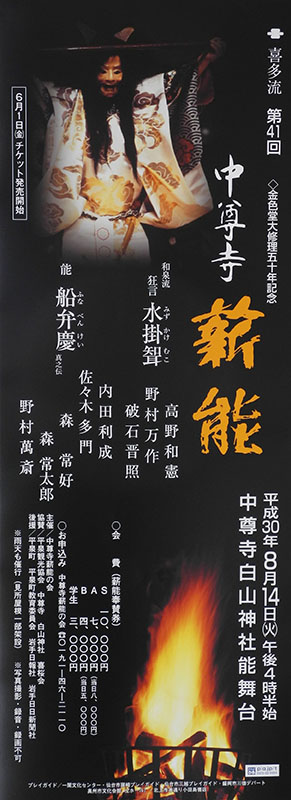 喜多流 第41回
◇金色堂大修理五十年記念
中尊寺
薪能
6月1日(金) チケット発売開始
平成30年8月14日(火)午後4時半始
中尊寺白山神社能舞台
和泉流
狂言 水掛聟
みず かけ むこ
高野和憲
野村万作
破石晋照
能 船弁慶 真之伝
ふな べん けい
内田利成
佐々木多門
森 常好
森 常太郎
野村萬斎
○会 費(薪能奉賛券)
S 一〇、〇〇〇円
A 七、〇〇〇円(当日八、〇〇〇円)
B 四、〇〇〇円(当日五、〇〇〇円)
学生 三、〇〇〇円
○お申込み 中尊寺薪能の会 ☎〇一九一-四六-二一一〇
主催/中尊寺薪能の会
協賛/平泉観光協会 中尊寺 白山神社 喜桜会
後援/平泉町 平泉町教育委員会 岩手日報社 岩手日日新聞社
※雨天も催行(見所屋根一部架設) ※写真撮影・録音・録画不可